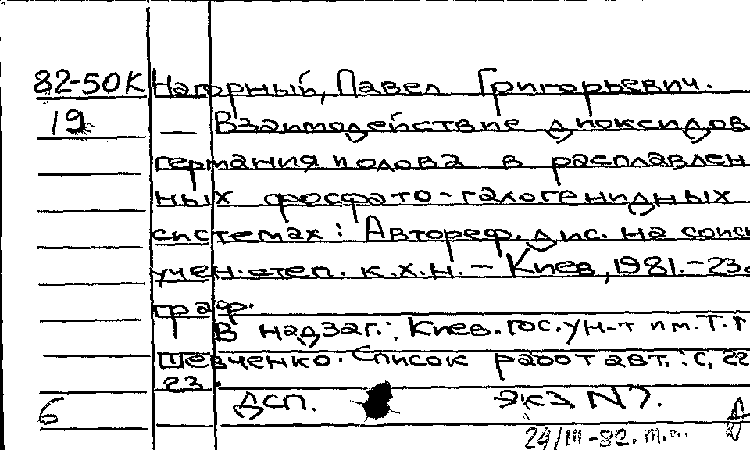 82-50К Нагорный, Павел Григорьевич.
19 — Взаимодействие диоксидов
германия и олова в расплавлен
ных фосфато-галогенидных
системах: Автореф. дис. на соиск
учен. степ. к.х.н. – Киев, 1981. – 23с
граф.
В надзаг.: Киев. гос. ун-т им. Т.Г
Шевченко. Список работ авт.: с. 22
23.
6 ДСП. Экз N7.
24/III-82.